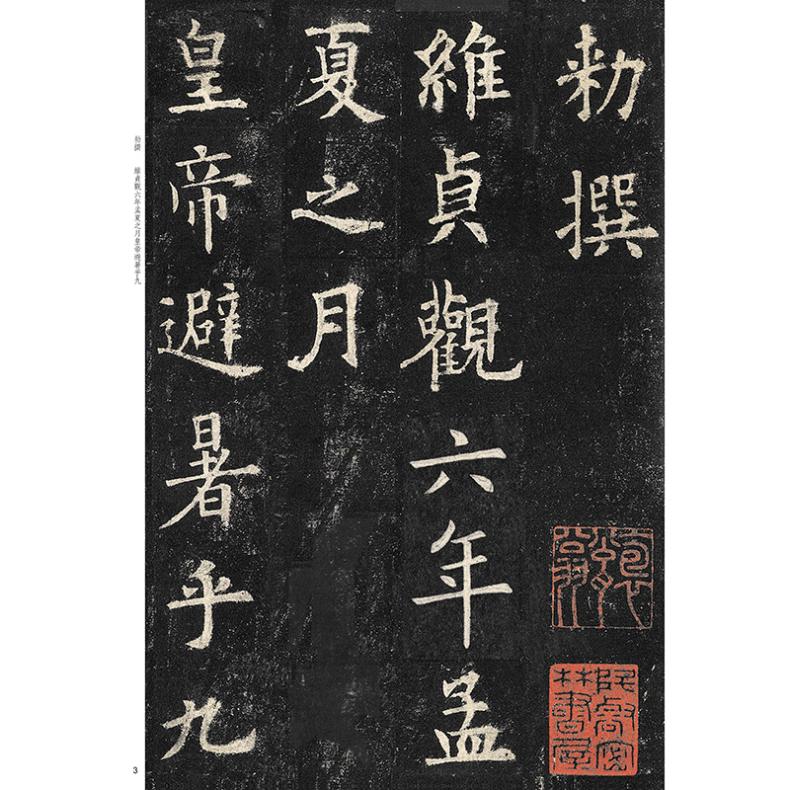 勑撰
維貞觀六年孟
夏之月
皇帝避暑乎九
勑撰 維貞觀六年孟夏之月皇帝避暑乎九
3